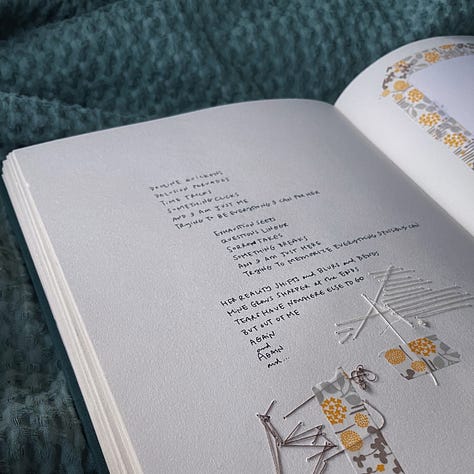 DECLINE QUICKENS
DELUSION PERVADES
TIME TRICKS
SOMETHING CLICKS
AND I AM JUST ME
TRYING TO BE EVERYTHING I CAN FOR HER
EXHAUSTION SEEPS
QUESTIONS LINGER
SORROW TAKES
SOMETHING BREAKS
AND I AM JUST HERE
TRYING TO MEMORIZE EVERYTHING SENSES CAN
HER REALITY SHIFTS and BLURS and BENDS
MINE GROWS SHARPER at the ENDS
TEARS HAVE NOWHERE ELSE TO GO
BUT OUT OF ME
AGAIN
and
AGAIN
and...